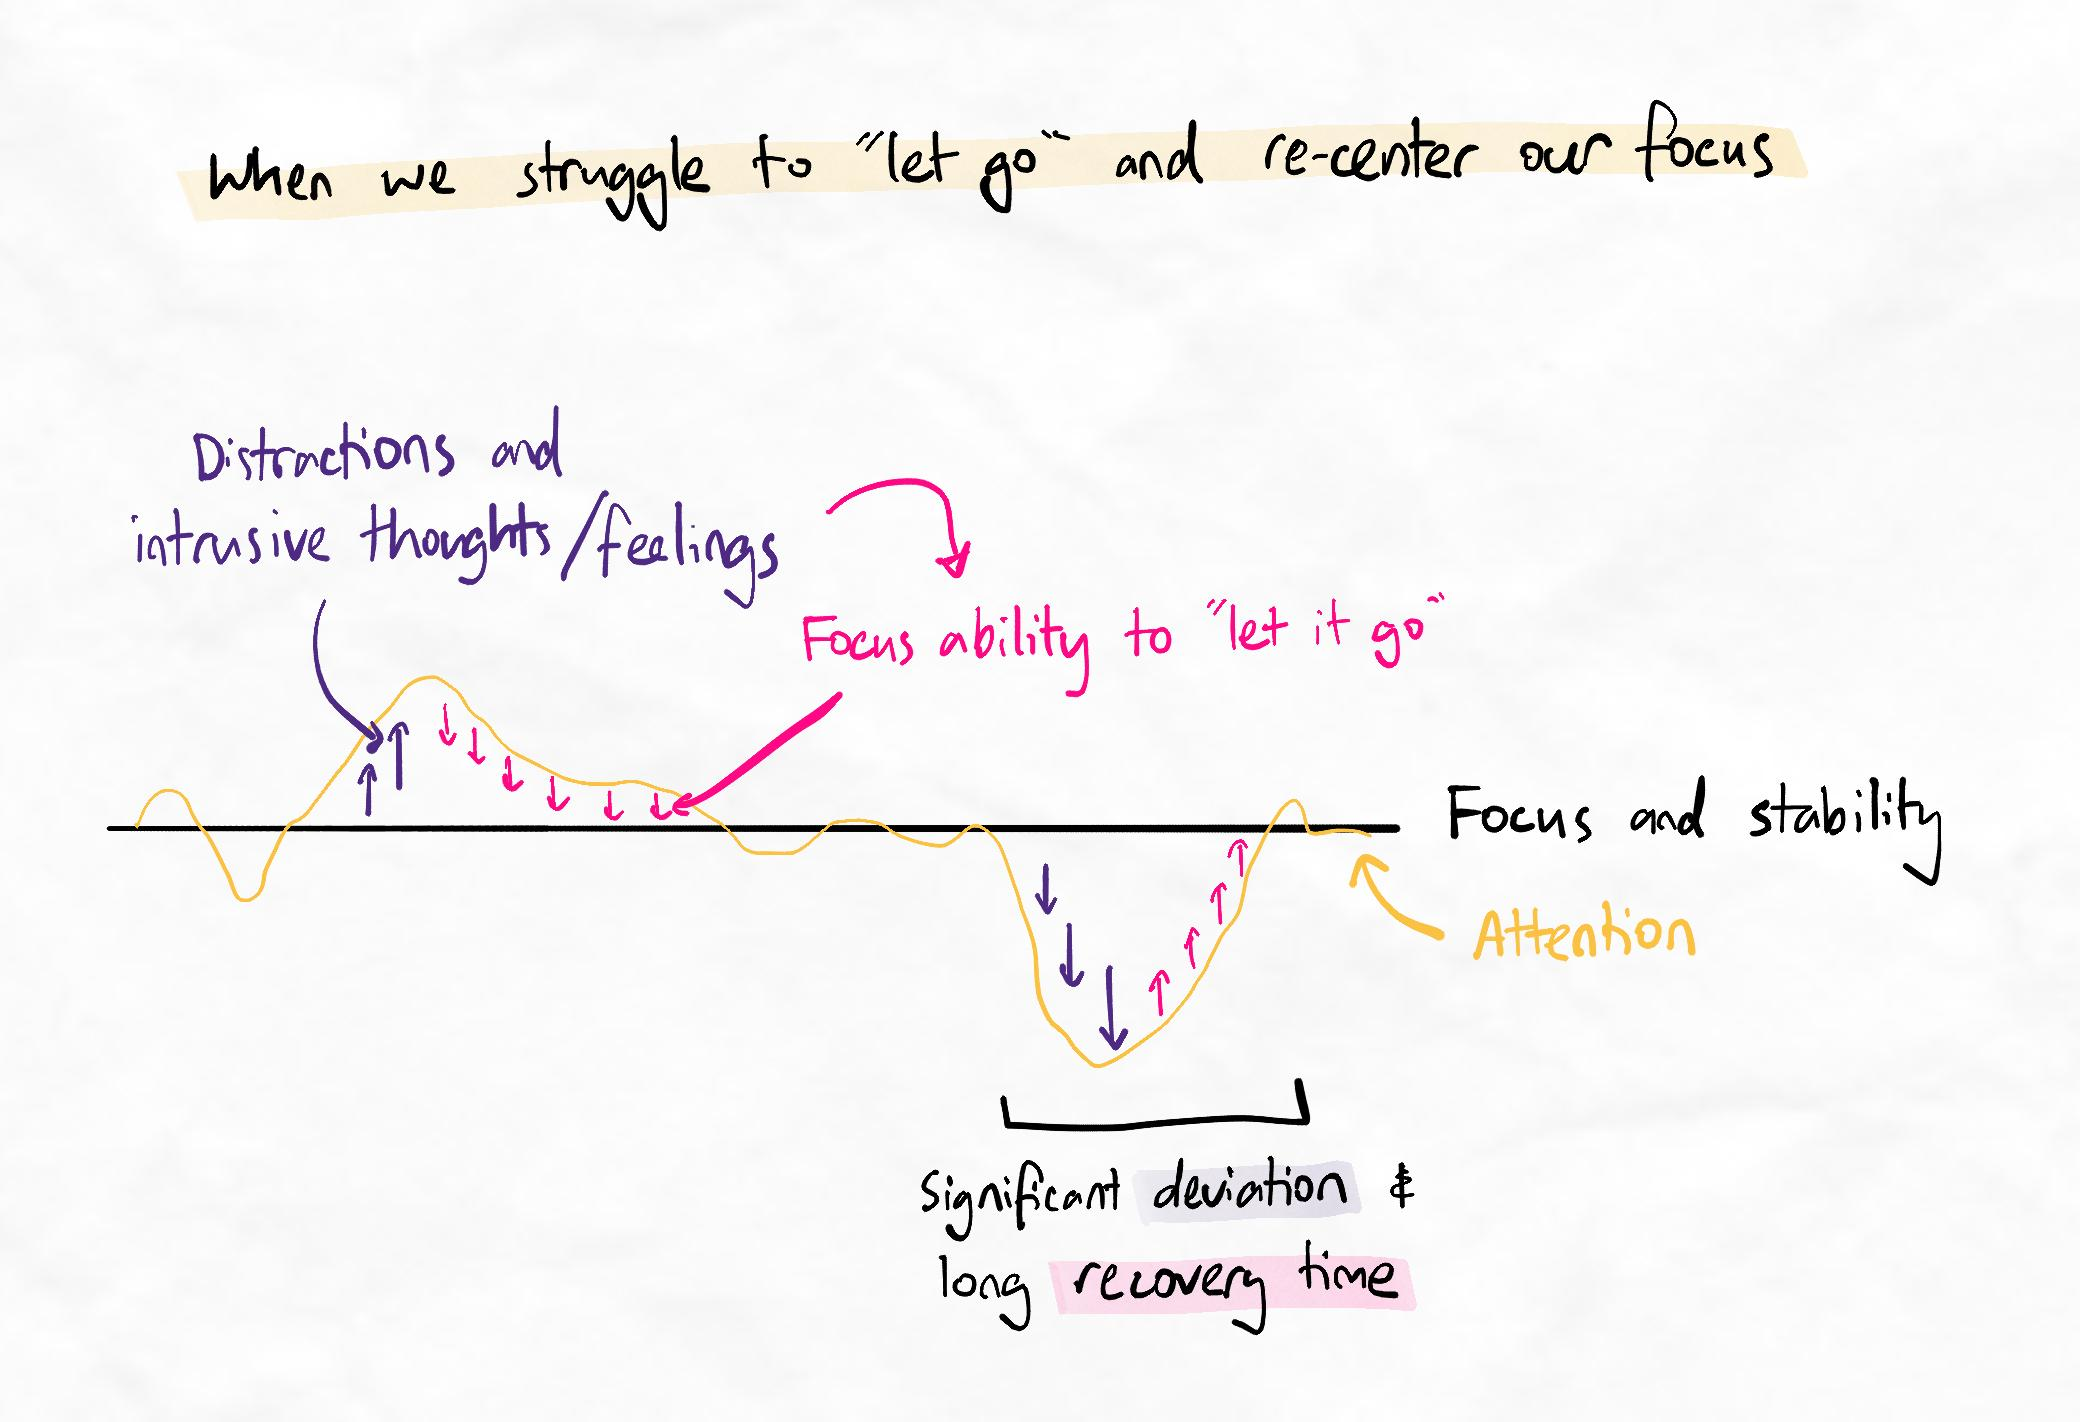 When we struggle to "let go" and re-center our focus
Distractions and
intrusive thoughts/feelings
Focus ability to "let it go"
Focus and stability
Attention
Significant deviation &
long recovery time